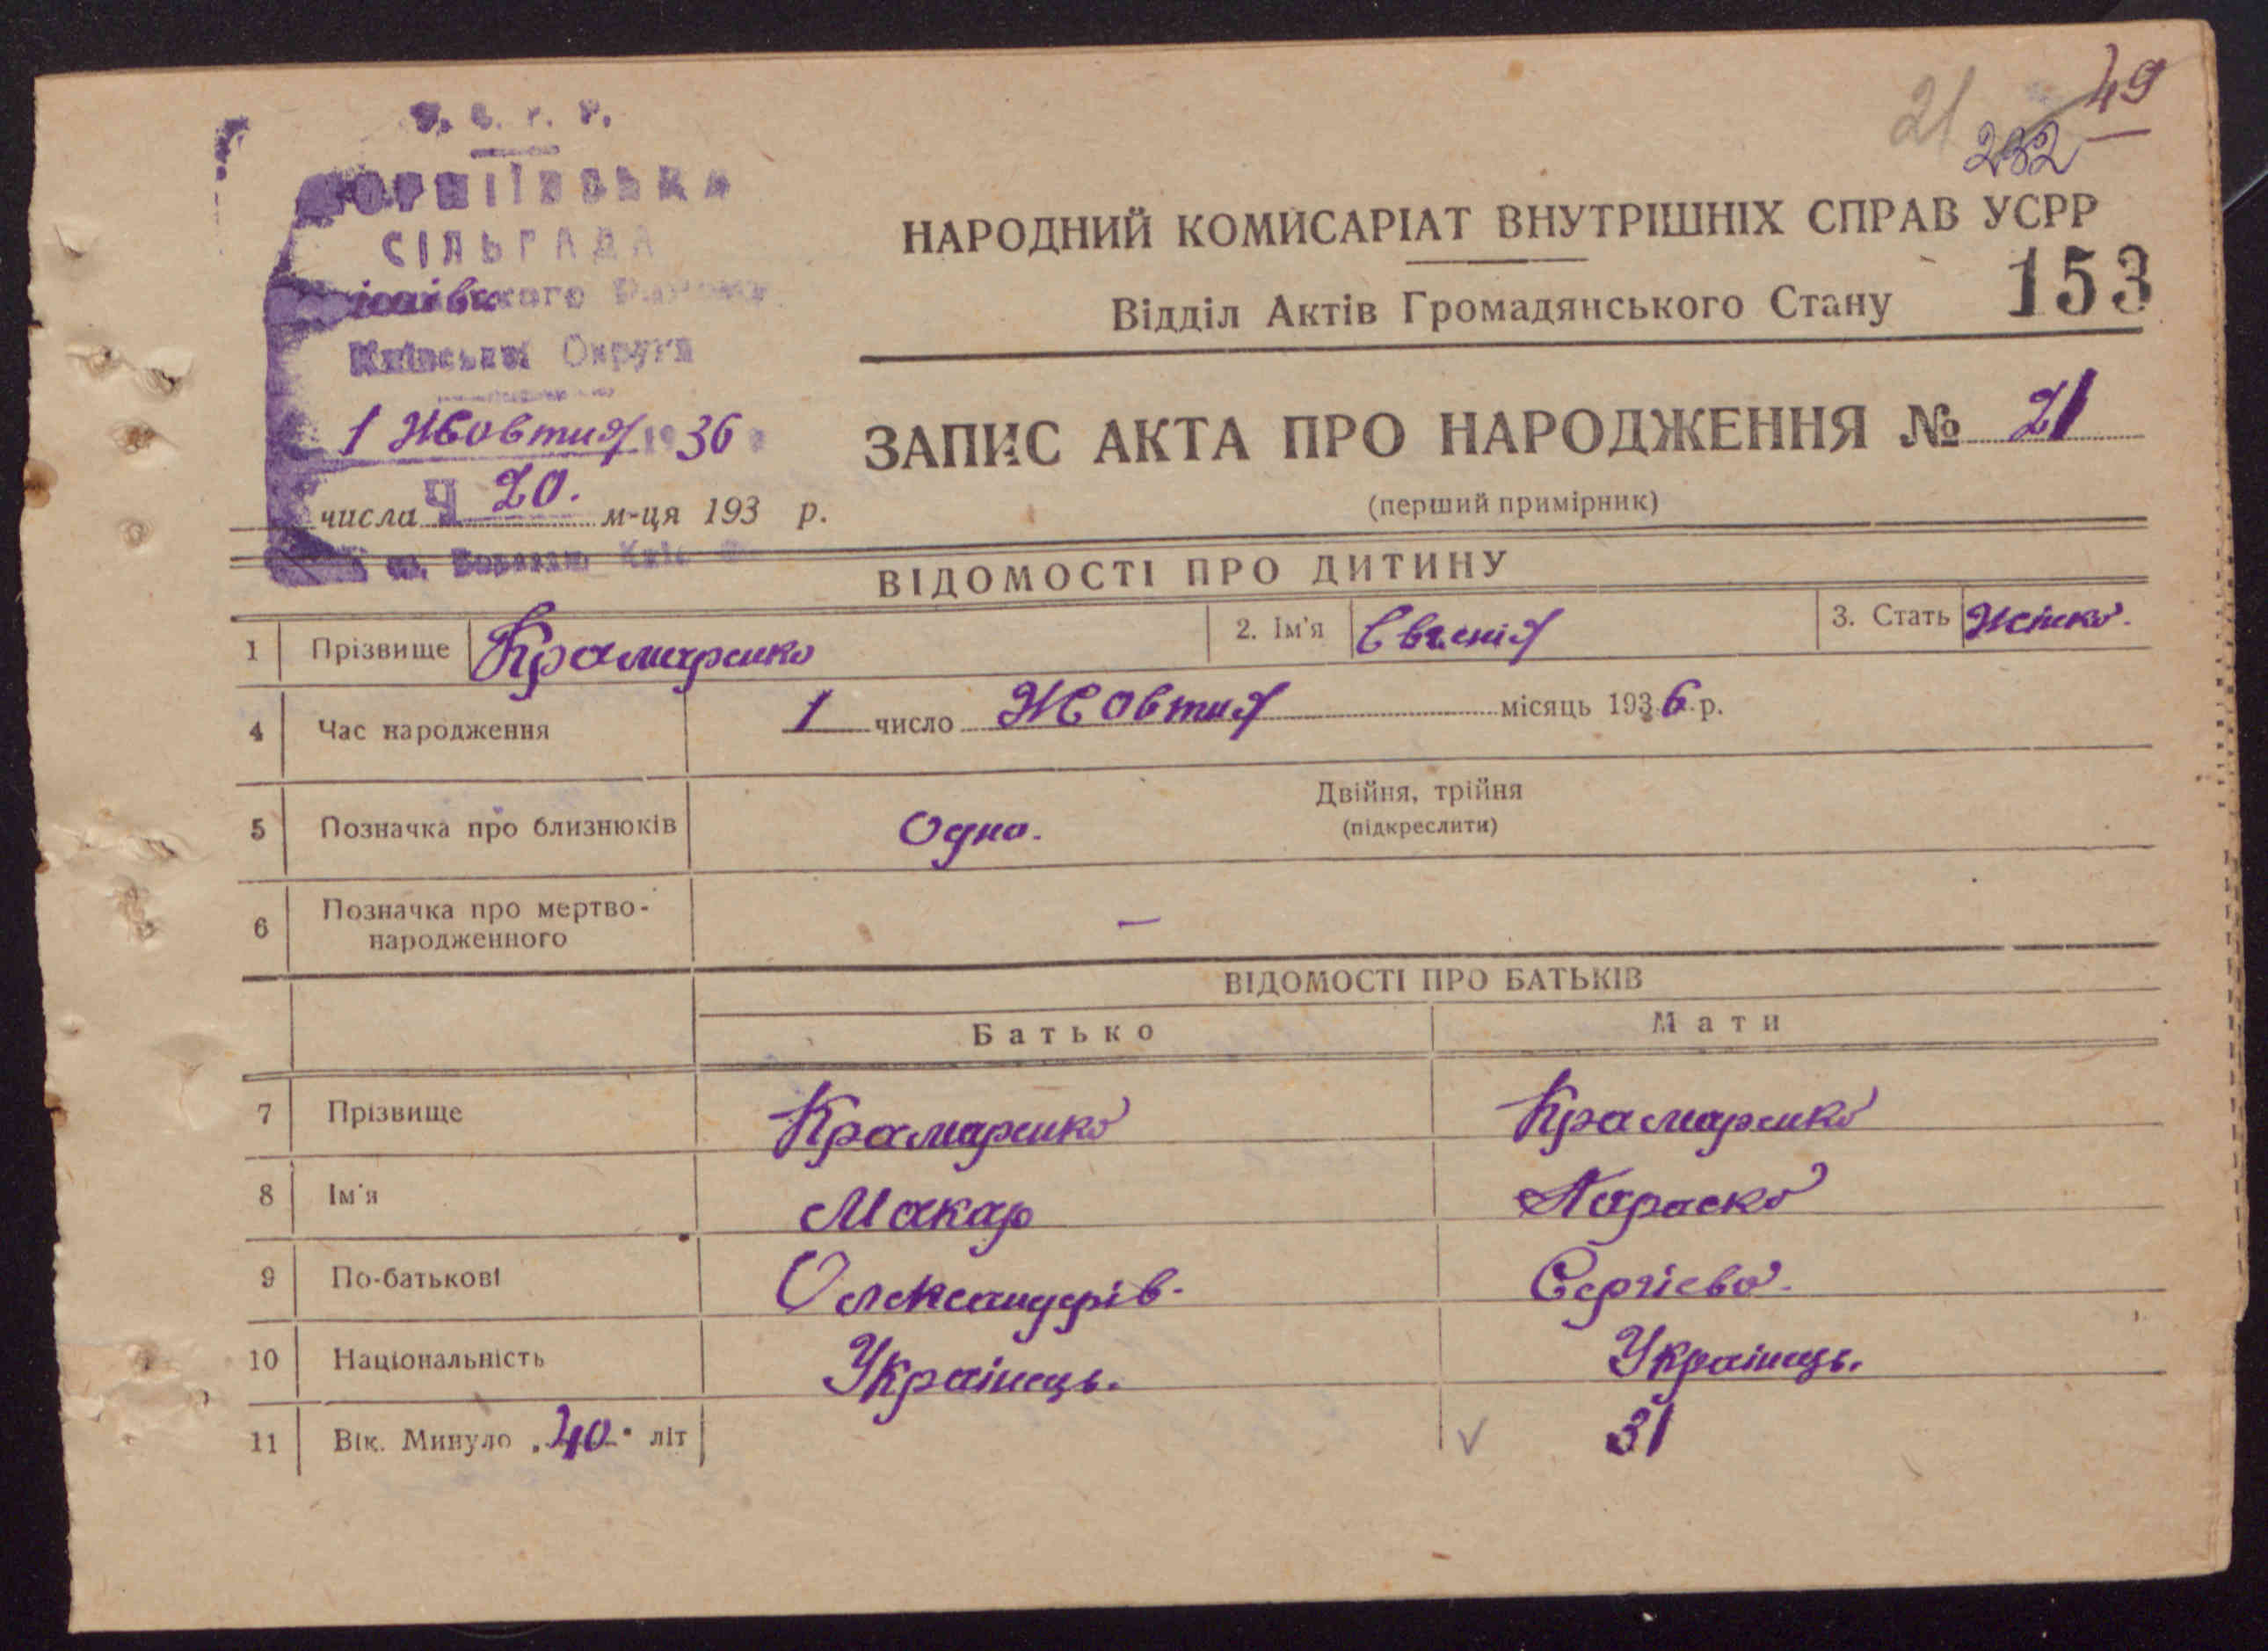 21 49
232
У. С. Р. Р.
СІЛЬРАДА
Київської Округи
1 Жовтня 1936
Ч 20.
числа м-ця 193 р.
НАРОДНИЙ КОМИСАРІАТ ВНУТРІШНІХ СПРАВ УСРР
Відділ Актів Громадянського Стану 153
ЗАПИС АКТА ПРО НАРОДЖЕННЯ № 21
(перший примірник)
ВІДОМОСТІ ПРО ДИТИНУ
1 Прізвище Крамаренко 2. Ім'я Євгенія 3. Стать Жіноч.
4 Час народження 1 число Жовтня місяць 1936 р.
5 Позначка про близнюків Одна. Двійня, трійня
(підкреслити)
6 Позначка про мертво-
народженного —
ВІДОМОСТІ ПРО БАТЬКІВ
Батько Мати
7 Прізвище Крамаренко Крамаренко
8 Ім'я Макар Параска
9 По-батькові Олександрів. Сергієва.
10 Національність Українець. Українець.
11 Вік. Минуло „40" літ 31